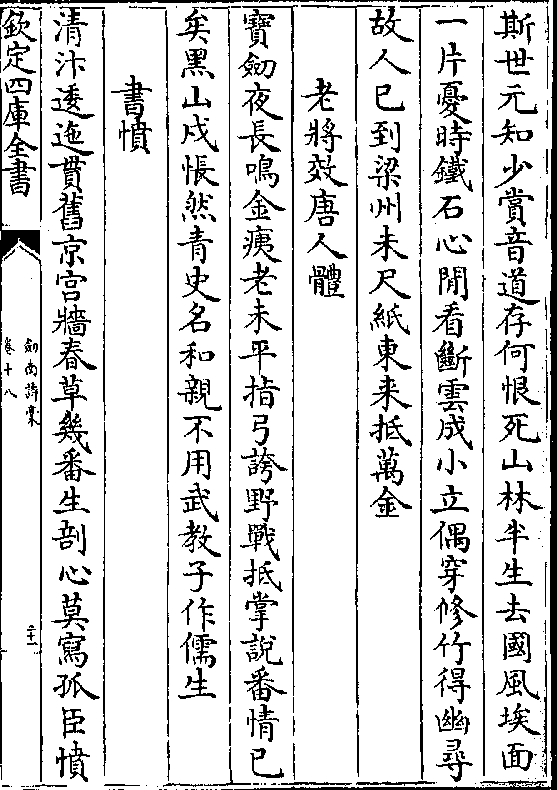 斯世元知少賞音道存何恨死山林半生去國風埃面
一片憂時鐵石心閒看斷雲成小立偶穿修竹得幽尋
故人已到梁州未尺紙東来抵萬金
老將效唐人體
寶劒夜長鳴金痍老未平指弓誇野戰抵掌說番情已
矣黑山戍悵然青史名和親不用武教子作儒生
書憤
清汴逶迤貫舊京宫牆春草幾番生剖心莫寫孤臣憤
欽定四庫全書
劒南詩稾
卷十八
二十一